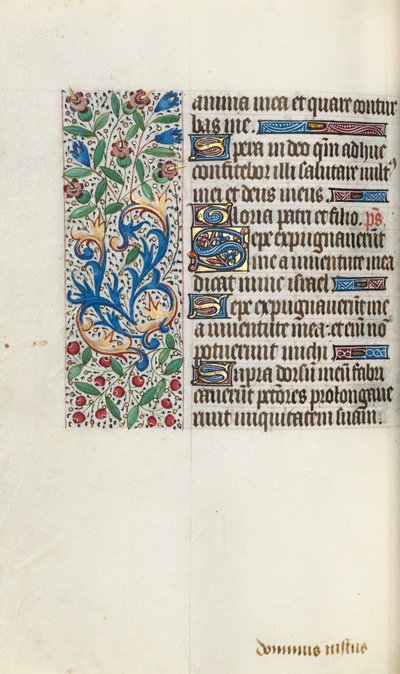 anima mea et quare contur
bas me.
Spera in deo qm̄ adhuc
confitebor illi salutare vult⁹
mei et deus meus.
Gloria patri et filio. ps̄.
Sepe expugnauerūt
me a iuuentute mea
dicat nunc israel.
Sepe expugnauerūt me
a iuuentute mea. et eni nō
potuerunt michi.
Supra dorsū meū fabri
cauerūt pctōres prolongaue
runt iniquitatem suam.
dominus iustus